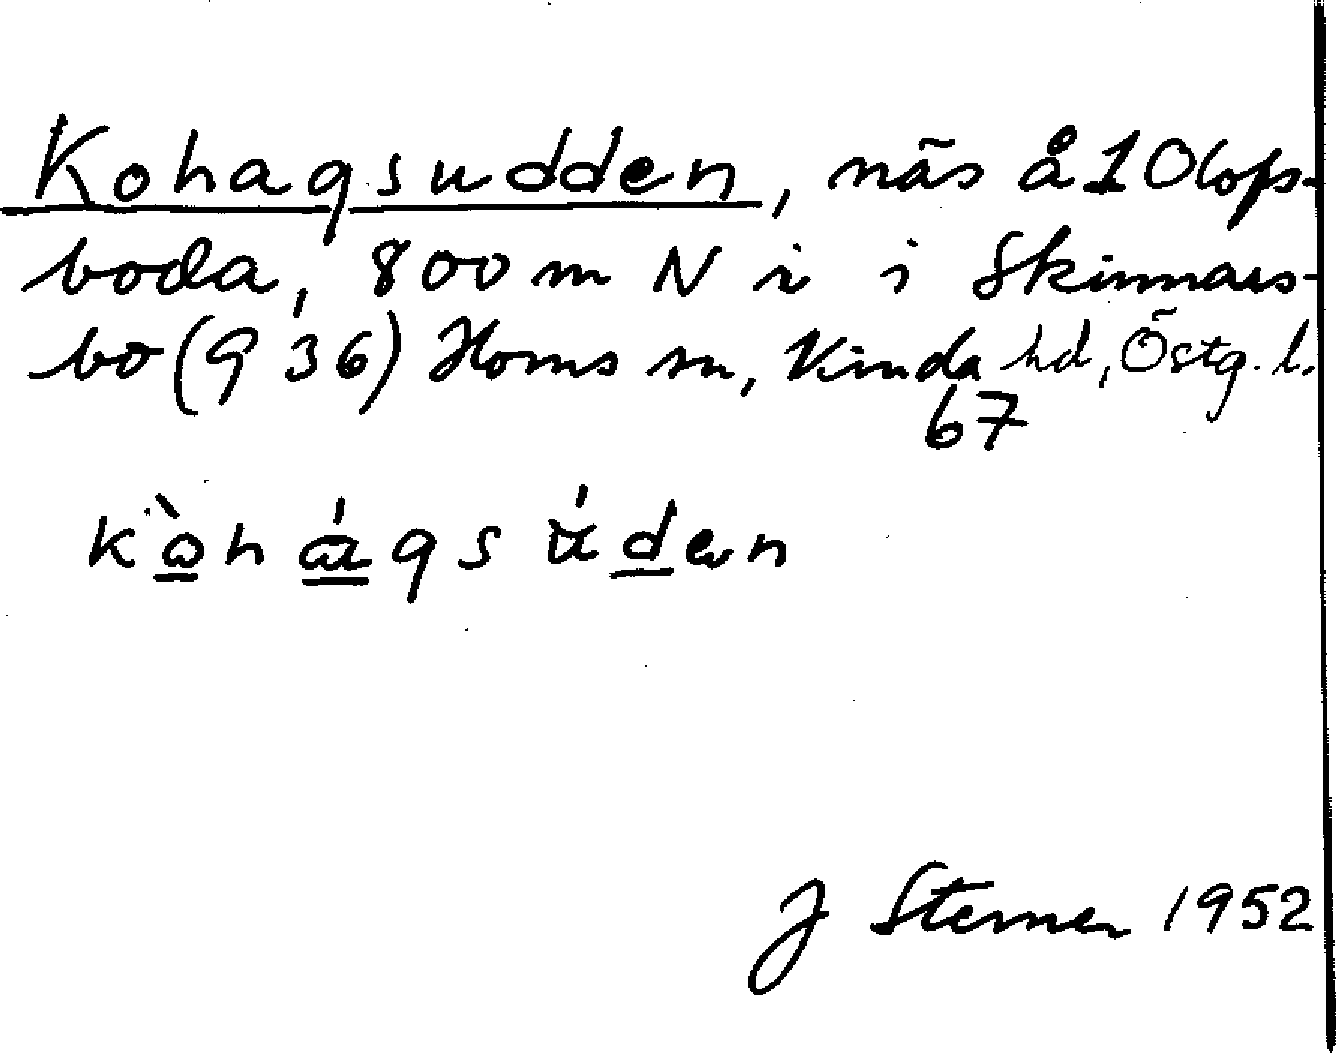 Kohagsudden, näs å 1 Olofs-
boda, 800 m N i i Skinnars-
bo (9 36) Horns sn, Kinda hd, Östg. l.
67
J Sterner 1952